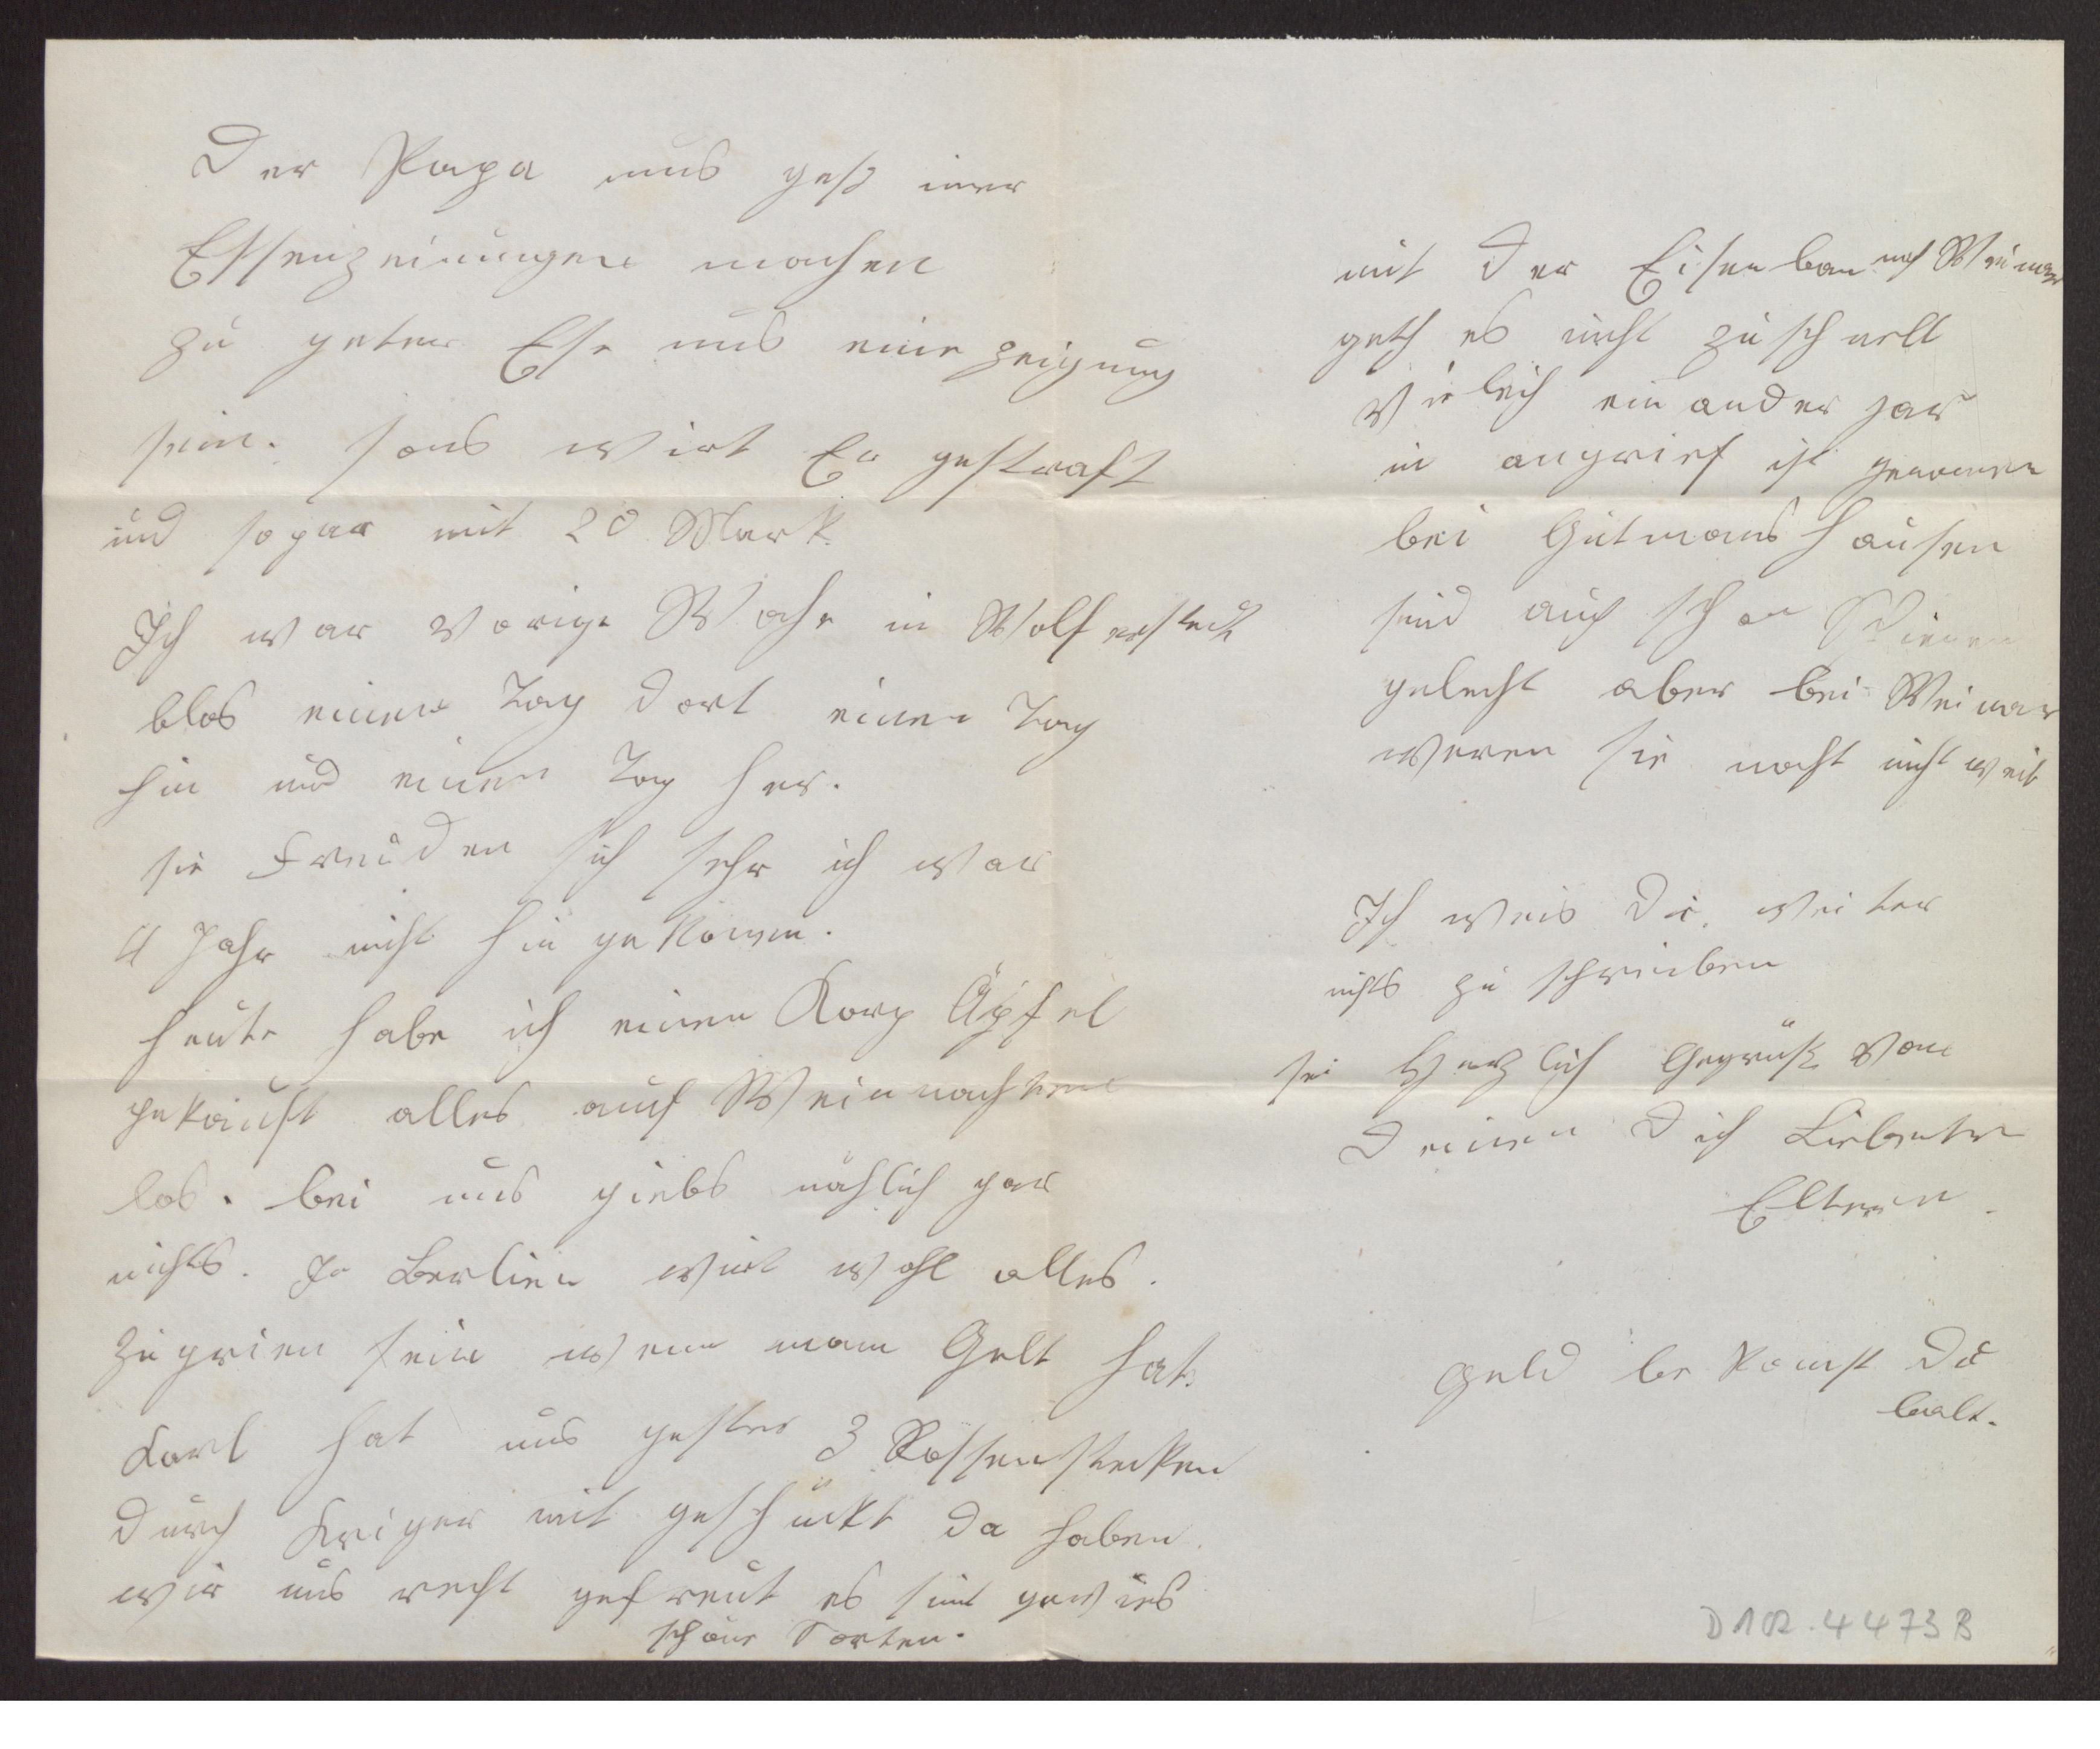 Der Papa mus gest imer
Essenzeinungen machen
zu geter Ese mus eine zeignung
sein. sons wirt Er gestraft
und sogar mit 20 Mark.
Ich war vorige Woche in Wolferstedt
blos einen Tag dort einen Tag
hin und einen Tag her.
sie Freuden sich sehr ich war
4 Jahr nicht hin gekomen.
heute habe ich einen Korp Äpfel
gekauft alles auf Weinnachten
los. bei uns giebs nöhlich gar
nichts. In Berlien wirt wohl alles.
zugrien sein wenn man Gelt hat.
Karl hat uns gester 3 Rossenstecken
durch Kriger mit geschückt da haben
wir uns recht gefreut es sint gewies
schöne Sorten.
mit der Eisenban nach Weimar
geth es nicht zu schnell
vieleich ein ander jar
in angrief ist genomen
bei Gutmanshausen
sind auch schon Schienen
gelecht aber bei Weimar
weren sie nocht nicht weit
Ich weis Dir weiter
nichts zu schreiben
sei Herzlich Gegrüßt von
Deinen Dich Liebenten
Eltern.
Geld be komst Du
balt.
D 102.4473 B